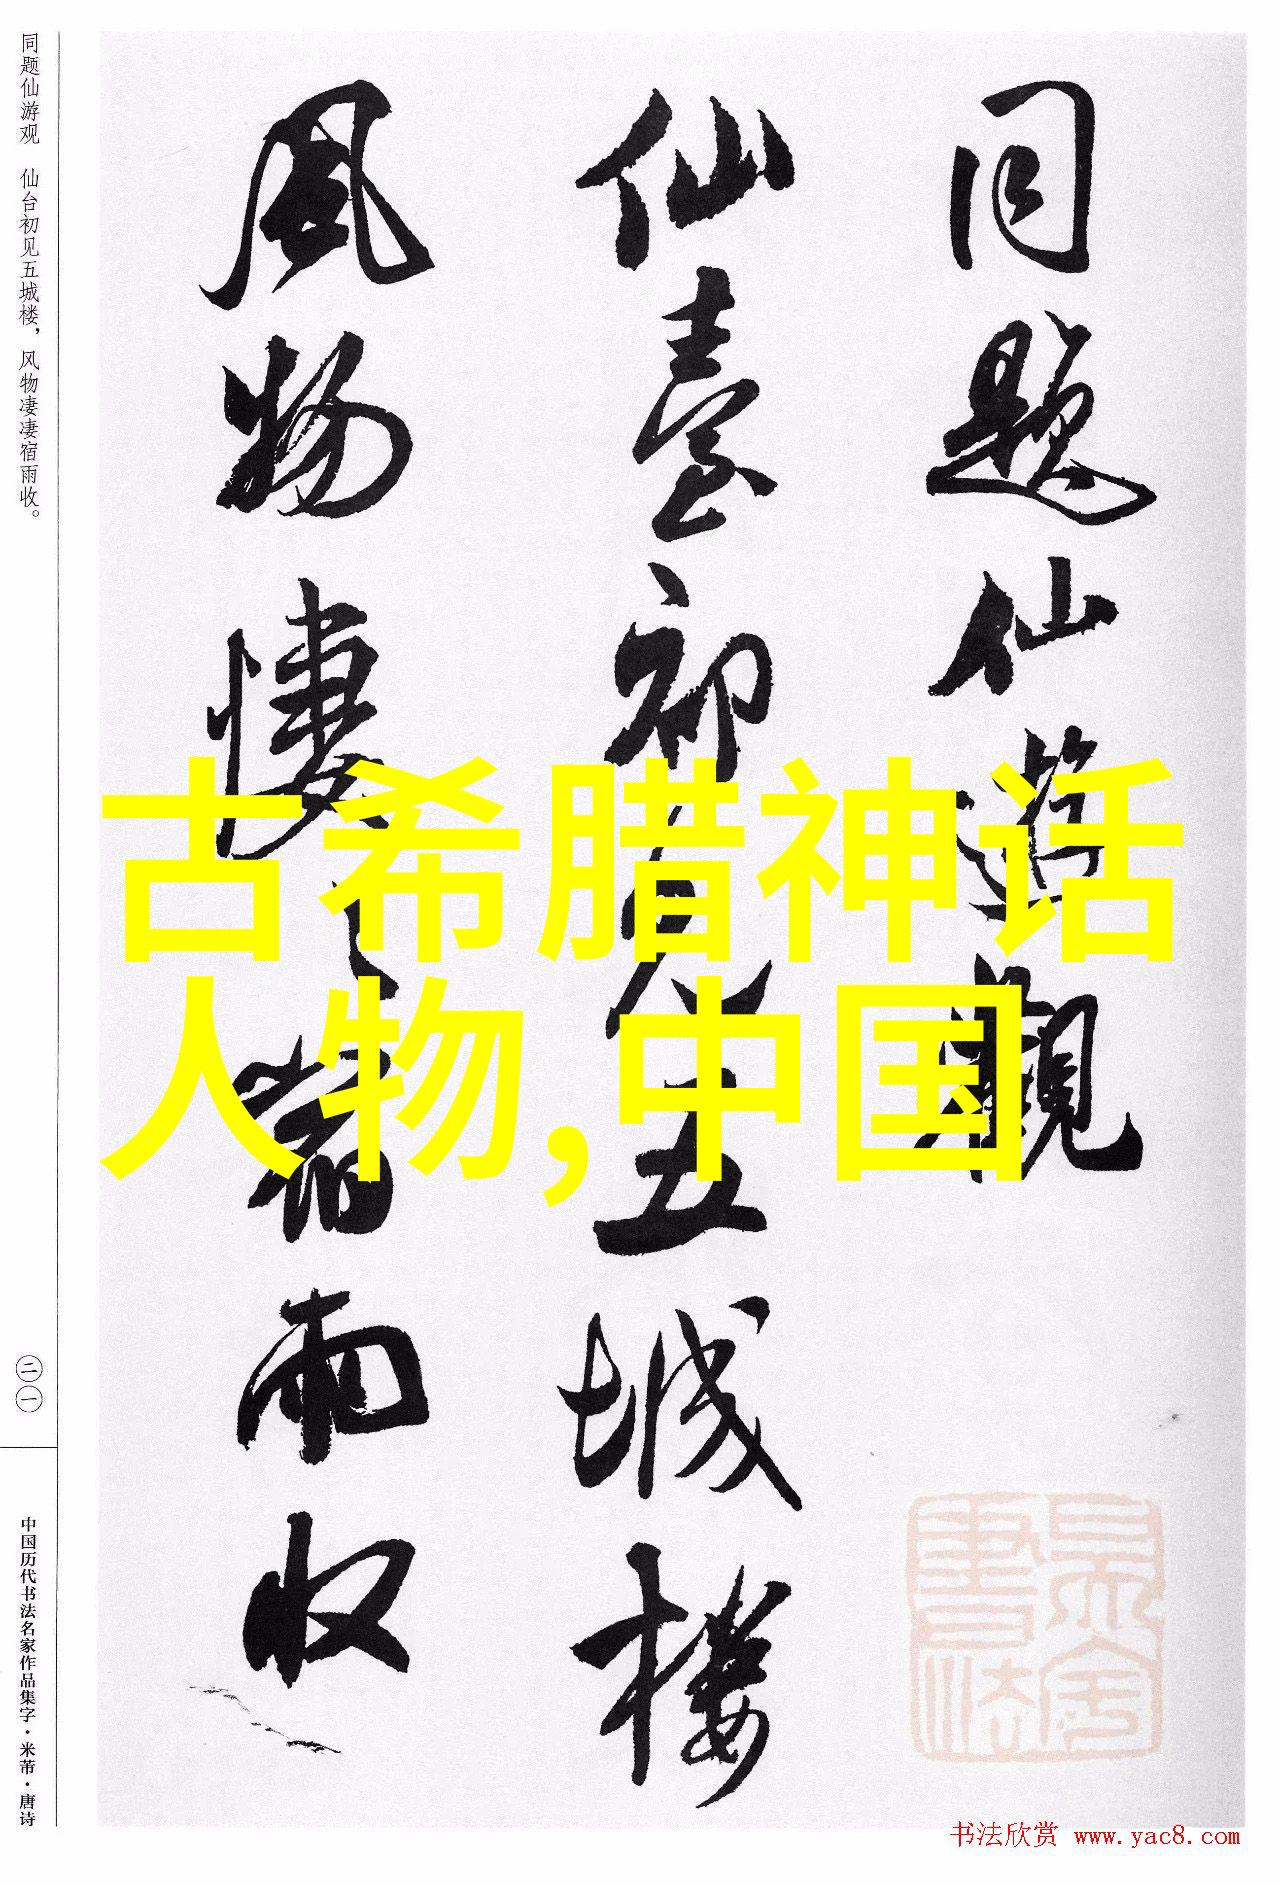 同题仙游观　仙台初见五城楼，风物凄凄宿雨收。
同題仙遊觀
仙臺初見五城樓
風物悽〻宿雨收
古希腊神话
人物,中国
二一
中国历代书法名家作品集字·米芾·唐诗
书法欣赏 www.yac8.com